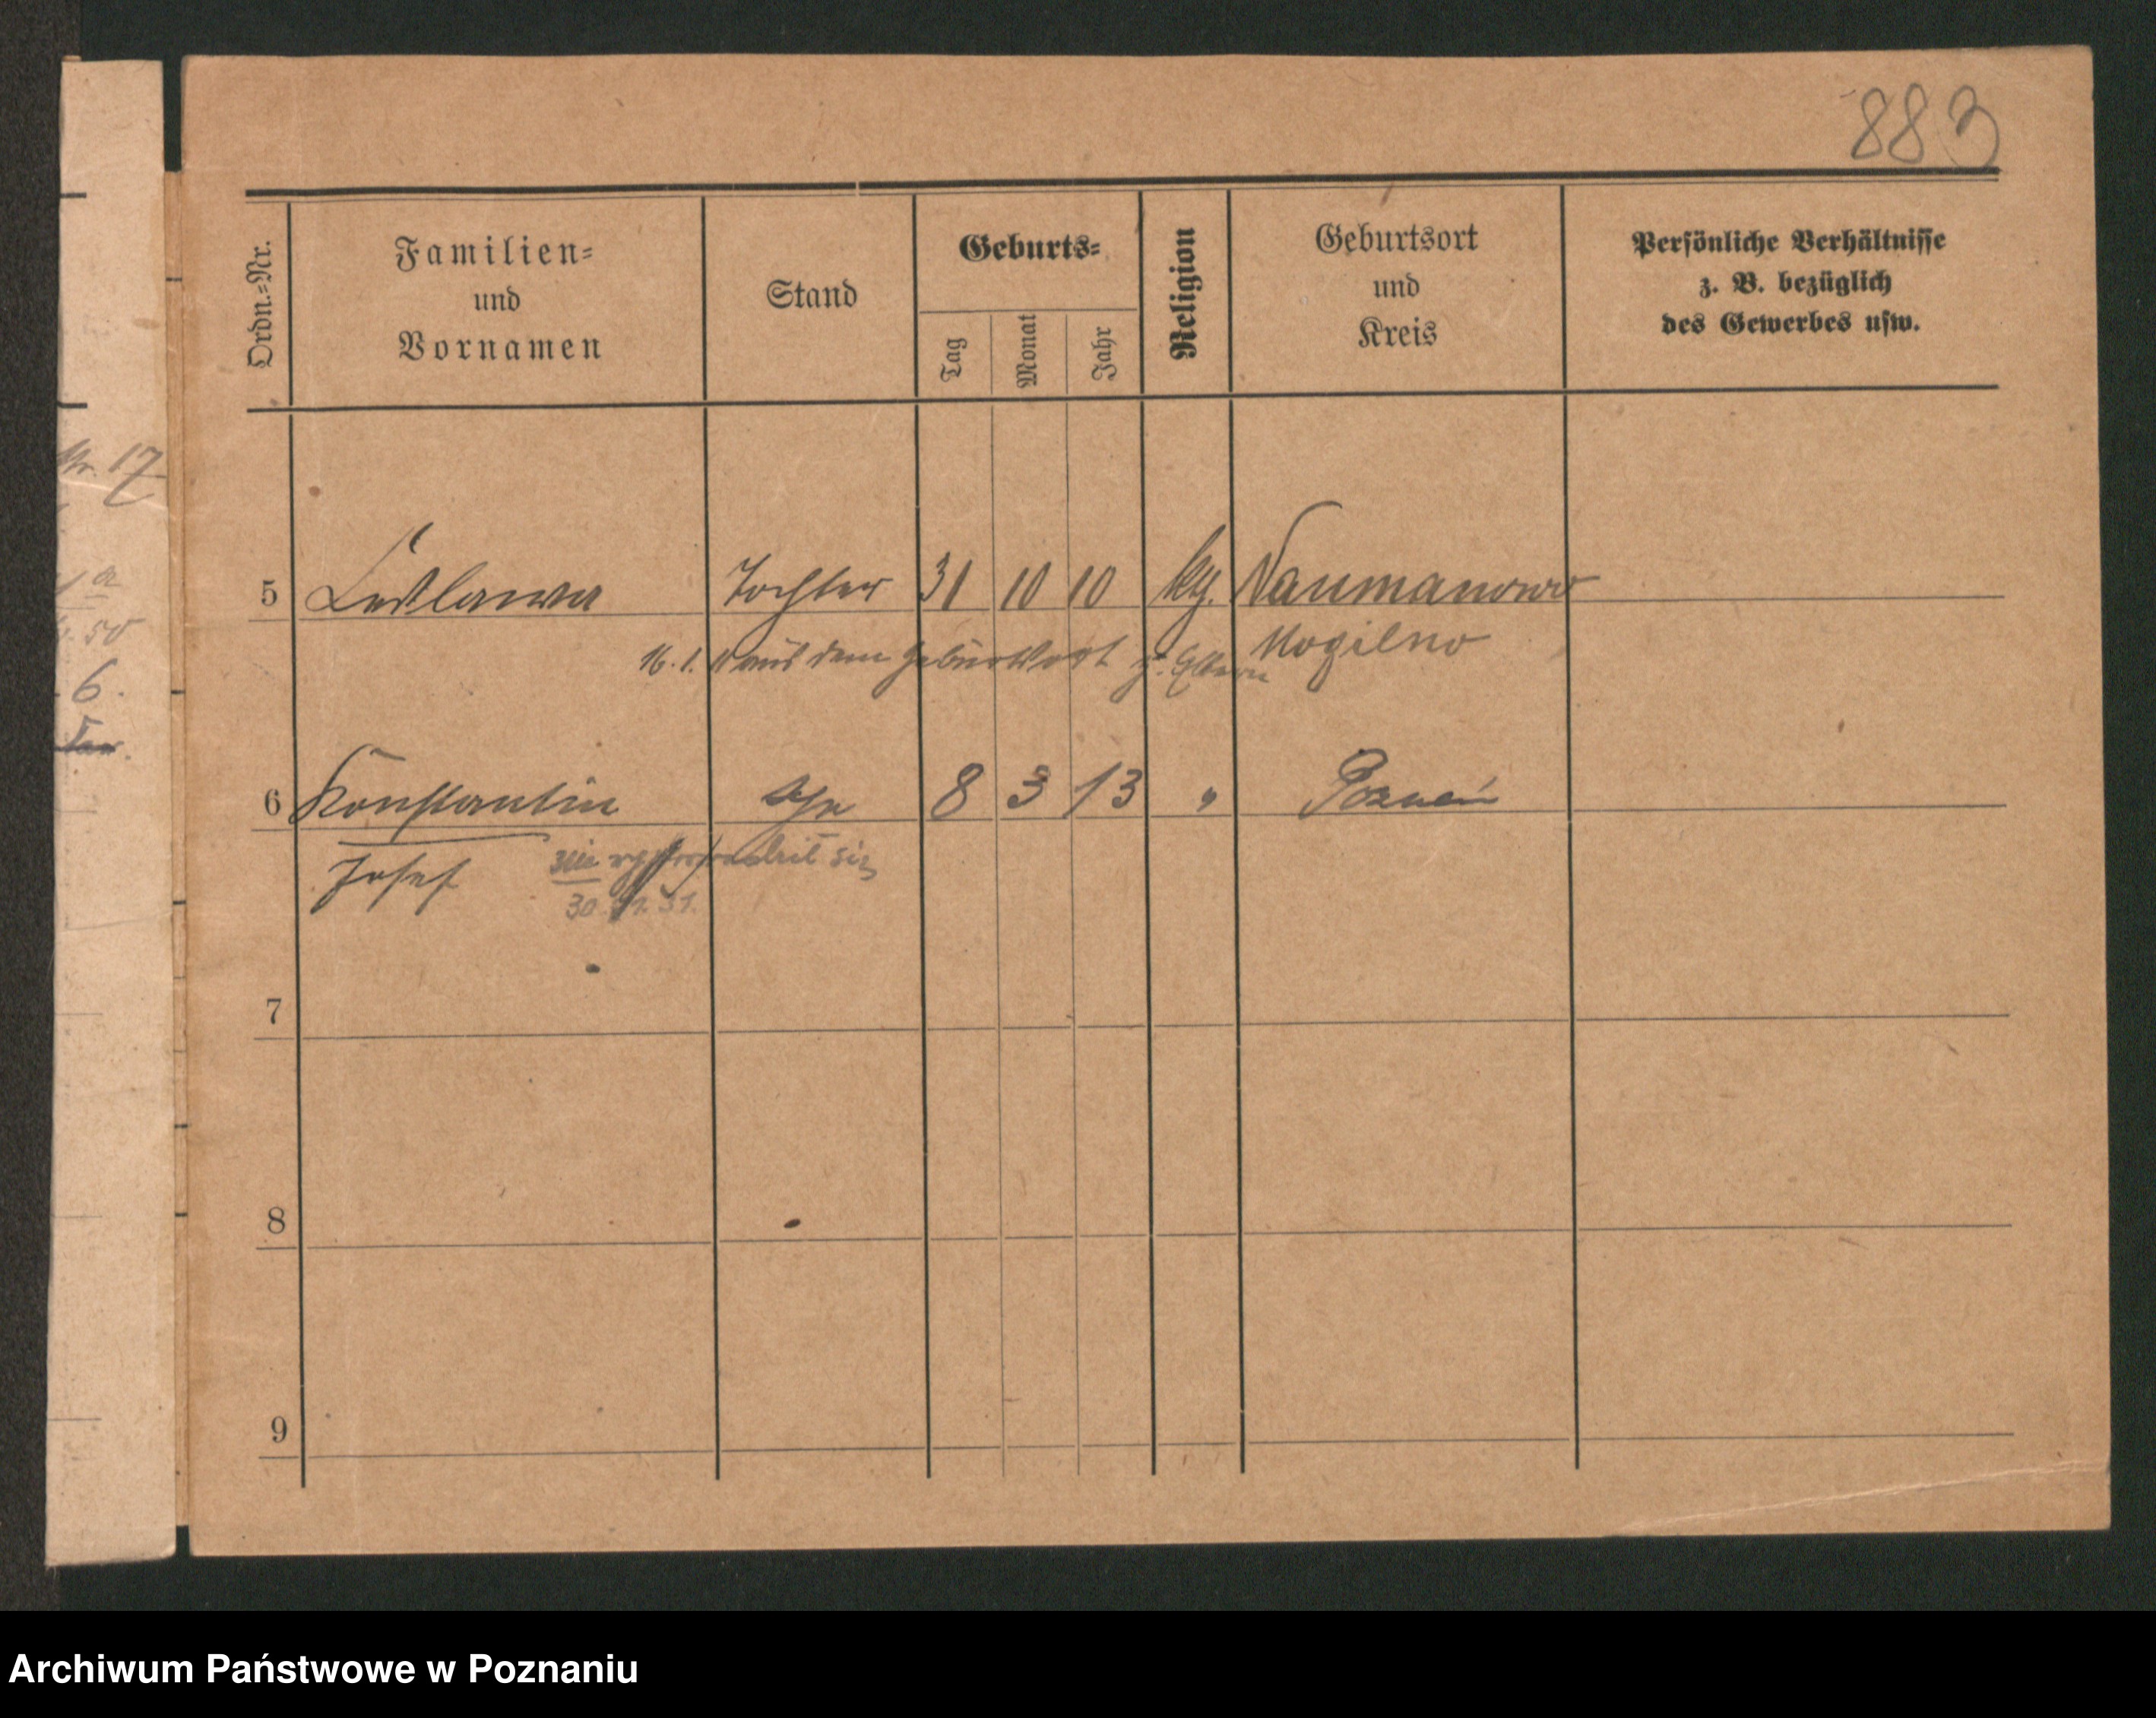 883
Ordn.=Nr.
Familien=
und
Vornamen
Stand
Geburts=
Tag
Monat
Jahr
Religion
Geburtsort
und
Kreis
Persönliche Verhältnisse
z. B. bezüglich
des Gewerbes usw.
Nr. 17
a
50
6.
5 Tochter 31 10 10 ktg. Naumanowo
16. 1. aus dem Geburtsort z. Eltern Mogilno
6 Konstantin 8 3 13 " Poznań
Josef nie się
30. 31.
7
8
9
Archiwum Państwowe w Poznaniu